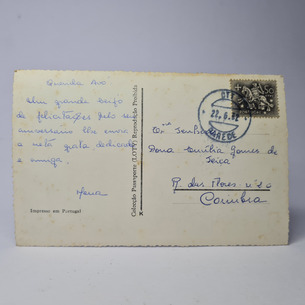 Querida Avó
Um grande beijo
de felicitações pelo seu
aniversario lhe envia
a neta grata dedicada
e amiga.
Impresso em Portugal
Colecção Passaporte (LOTY) Reprodução Proibida
CTT
22.6.
PAREDE
50
Dona Emília Gomes de
R. das Flores nº
Coimbra